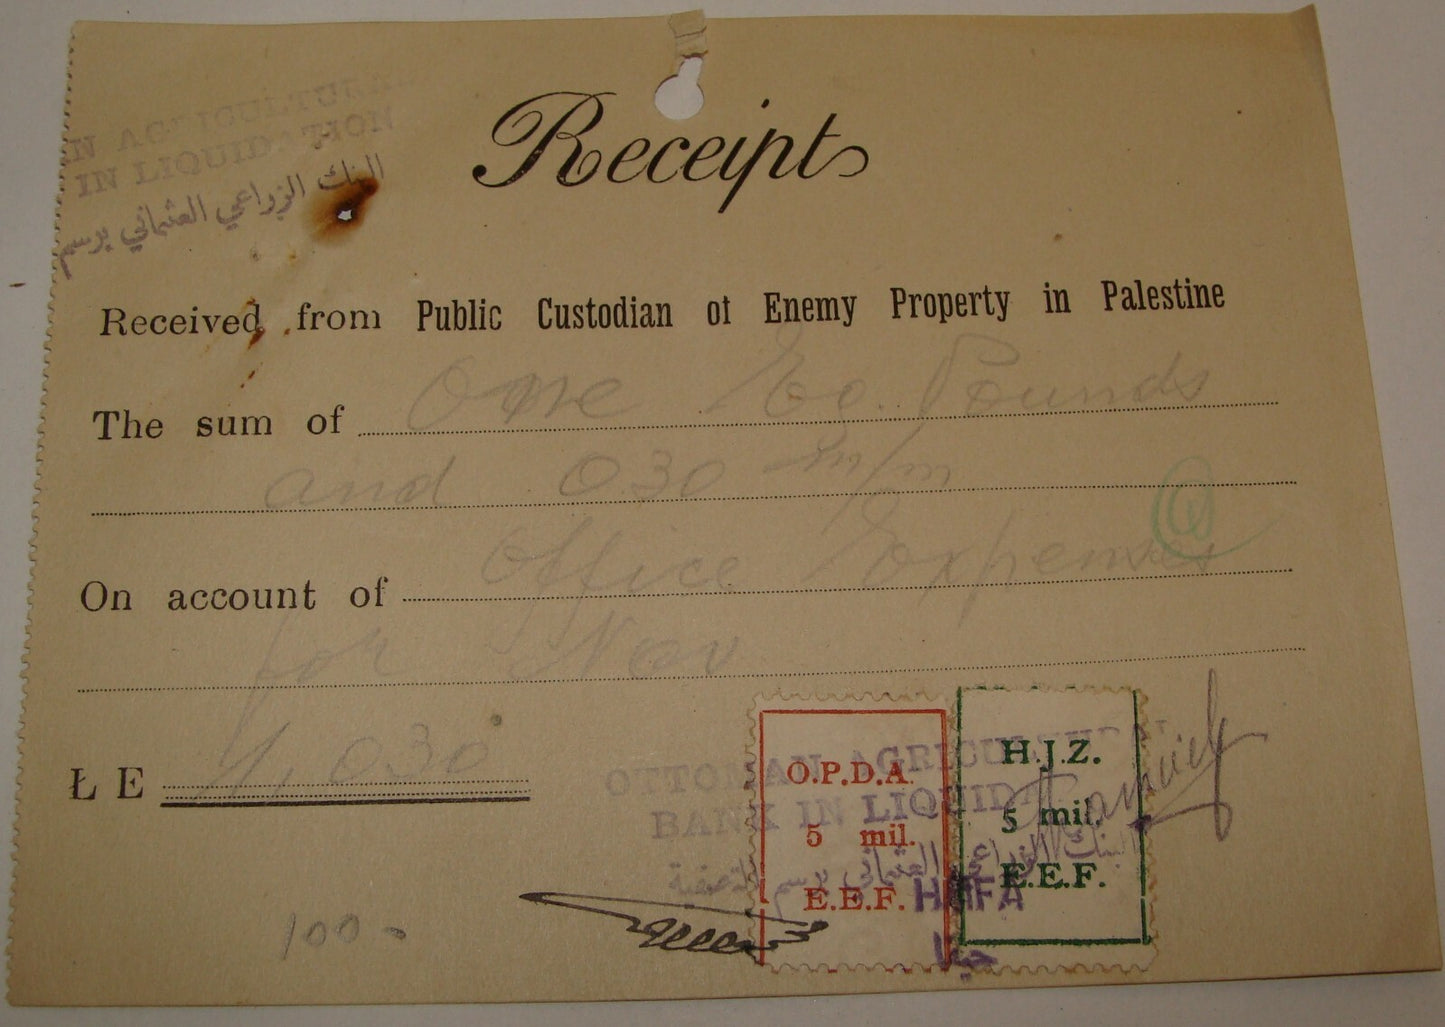 N AGRICULTURA
IN LIQUIDATION
البنك الزراعي العثماني برسم
Receipt
Received from Public Custodian of Enemy Property in Palestine
The sum of One Eg. Pounds
and 030 m/m
On account of Office Expenses
for Nov
Ł E 1,030
O.P.D.A.
5 mil.
E.E.F.
H.J.Z.
5 mil.
E.E.F.
OTTOMAN AGRICULTURAL
BANK IN LIQUIDA
البنك الزراعي العثماني برسم التصفية
HAIFA
حيفا
100 -